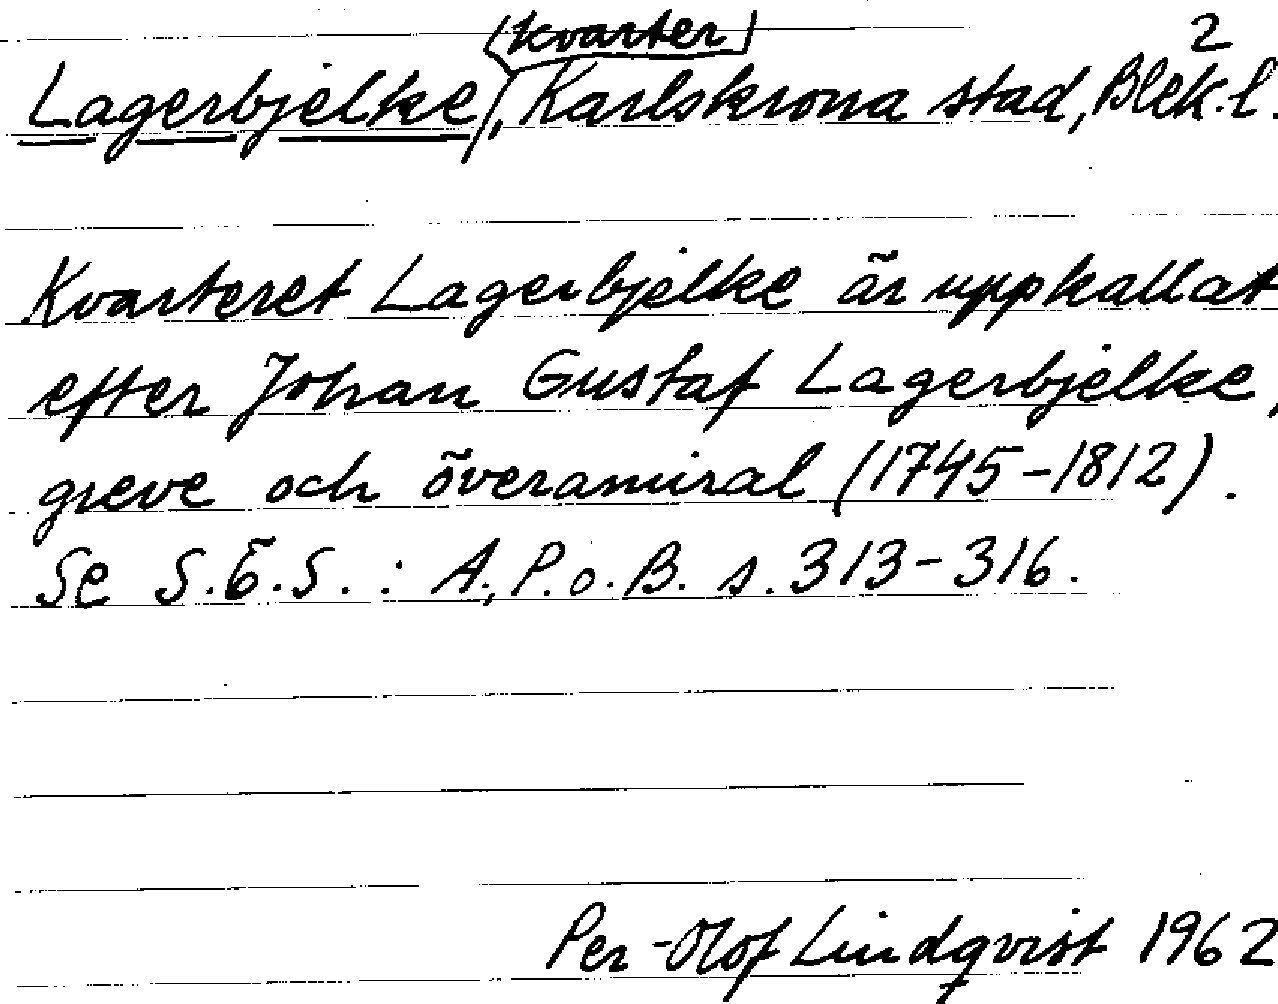 2
Lagerbjelke (kvarter), Karlskrona stad, Blek. l.
Kvarteret Lagerbjelke är uppkallat
efter Johan Gustaf Lagerbjelke,
greve och överamiral (1745-1812).
Se S.Ö.S. : A., P. o. B. s. 313-316.
Per-Olof Lindqvist 1962